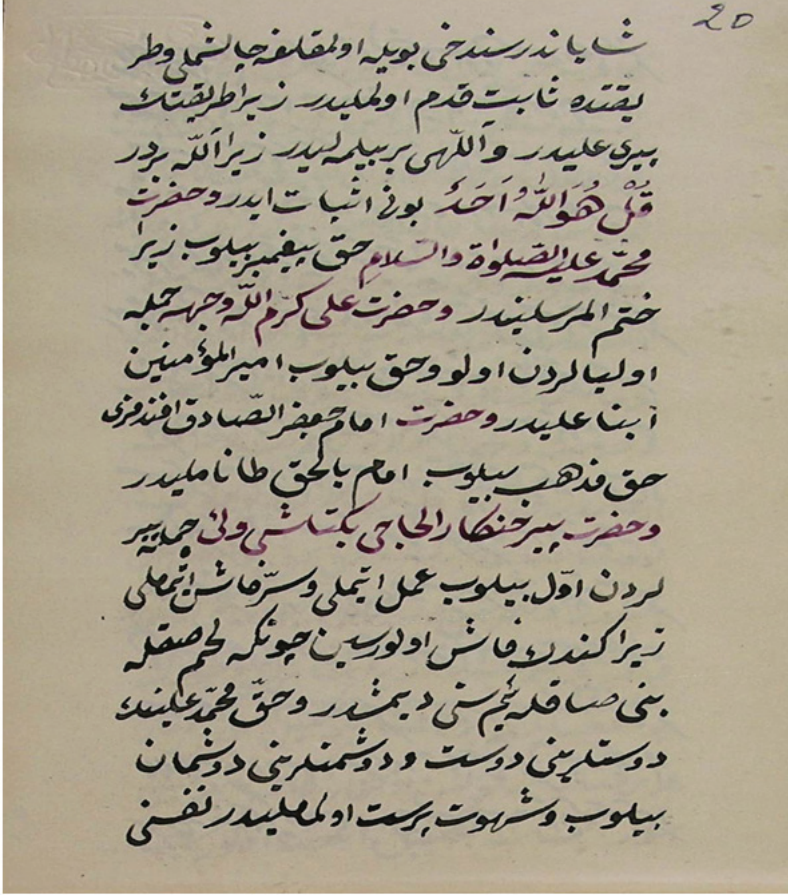 20
شایاندر سندخی بویله اولمقلغه چالشملی وطر
یقتده ثابت قدم اولملیدر زیرا طریقتك
پیری علیدر و اللّهی بر بیلمه لیدر زیرا اللّه بردر
قُلْ هُوَ اللّٰهُ اَحَدٌ بونی اثبات ایدر و حضرت
محمّد علیه الصّلوة والسّلام حقّ پیغمبر بیلوب زیرا
ختم المرسلیندر و حضرت علی كرّم اللّه وجهه جمله
اولیالردن اولو و حق بیلوب امیر المؤمنین
ابنا علیدر و حضرت امام جعفر الصّادق افندمزی
حق مذهب بیلوب امام بالحق طانمالیدر
و حضرت پیر خنكار الحاجی بكتاشی ولی جمله پیر
لردن اوّل بیلوب عمل ایتملی و سرّ فاش ایتمملی
زیرا كندك فاش اولورسین چونكه لحم صقله
بنی صاقلیه یم سنی دیمشدر و حقّ محمّد علینك
دوستلرینی دوست و دوشمنلرینی دوشمان
بیلوب و شهوت پرست اولمامالیدر نفسنی